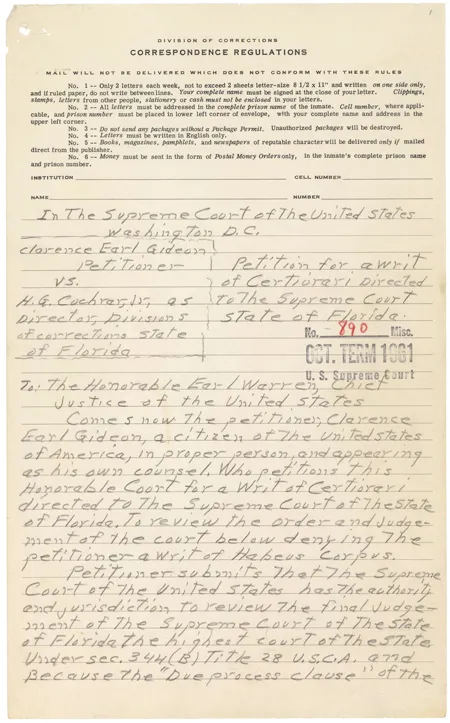 1
DIVISION OF CORRECTIONS
CORRESPONDENCE REGULATIONS
MAIL WILL NOT BE DELIVERED WHICH DOES NOT CONFORM WITH THESE RULES
No. 1 -- Only 2 letters each week, not to exceed 2 sheets letter-size 8 1/2 x 11" and written on one side only,
and if ruled paper, do not write between lines. Your complete name must be signed at the close of your letter. Clippings,
stamps, letters from other people, stationery or cash must not be enclosed in your letters.
No. 2 -- All letters must be addressed in the complete prison name of the inmate. Cell number, where appli-
cable, and prison number must be placed in lower left corner of envelope, with your complete name and address in the
upper left corner.
No. 3 -- Do not send any packages without a Package Permit. Unauthorized packages will be destroyed.
No. 4 -- Letters must be written in English only.
No. 5 -- Books, magazines, pamphlets, and newspapers of reputable character will be delivered only if mailed
direct from the publisher.
No. 6 -- Money must be sent in the form of Postal Money Orders only, in the inmate's complete prison name
and prison number.
INSTITUTION CELL NUMBER
NAME NUMBER
In The Supreme Court of The United States
Washington D.C.
Clarence Earl Gideon
Petitioner
vs.
H.G. Cochran, Jr, as
Director, Divisions
of corrections State
of Florida
Petition for a Writ
of Certiorari Directed
to The Supreme Court
State of Florida.
No. 890 Misc.
OCT. TERM 1961
U. S. Supreme Court
To: The Honorable Earl Warren, Chief
Justice of the United States
Comes now the petitioner, Clarence
Earl Gideon, a citizen of The United states
of America, in proper person, and appearing
as his own counsel. Who petitions this
Honorable Court for a Writ of Certiorari
directed to The Supreme Court of The State
of Florida. To review the order and Judge-
ment of the court below denying The
petitioner a writ of Habeus Corpus.
Petitioner submits That The Supreme
Court of The United States has The authority
and jurisdiction to review the final Judge-
ment of The Supreme Court of The State
of Florida the highest court of The State
Under sec. 344(B) Title 28 U.S.C.A. and
Because the "Due process clause" of the